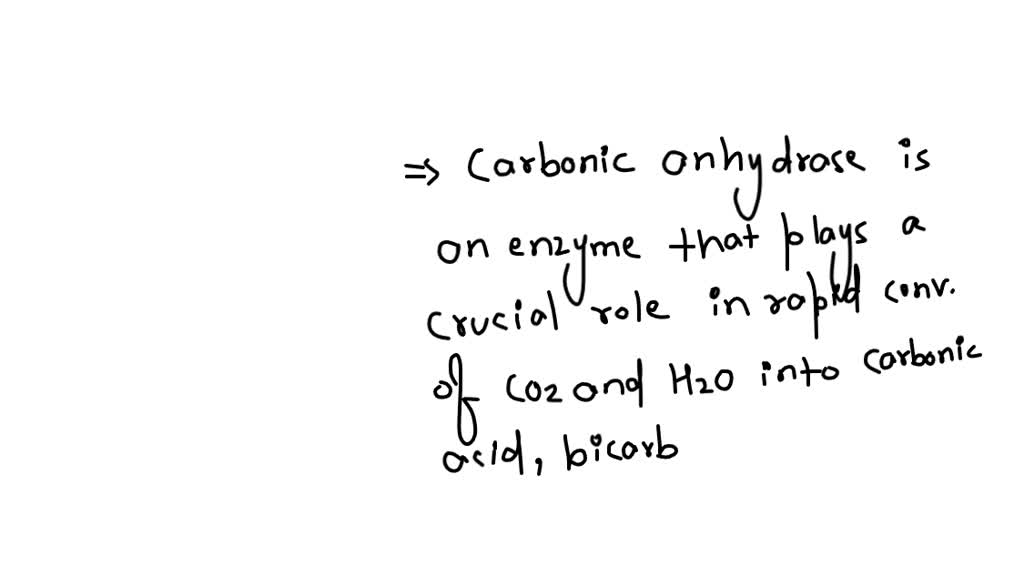 ⇒ Carbonic anhydrase is
an enzyme that plays a
crucial role in rapid conv.
of CO2 and H2O into carbonic
acid, bicarb